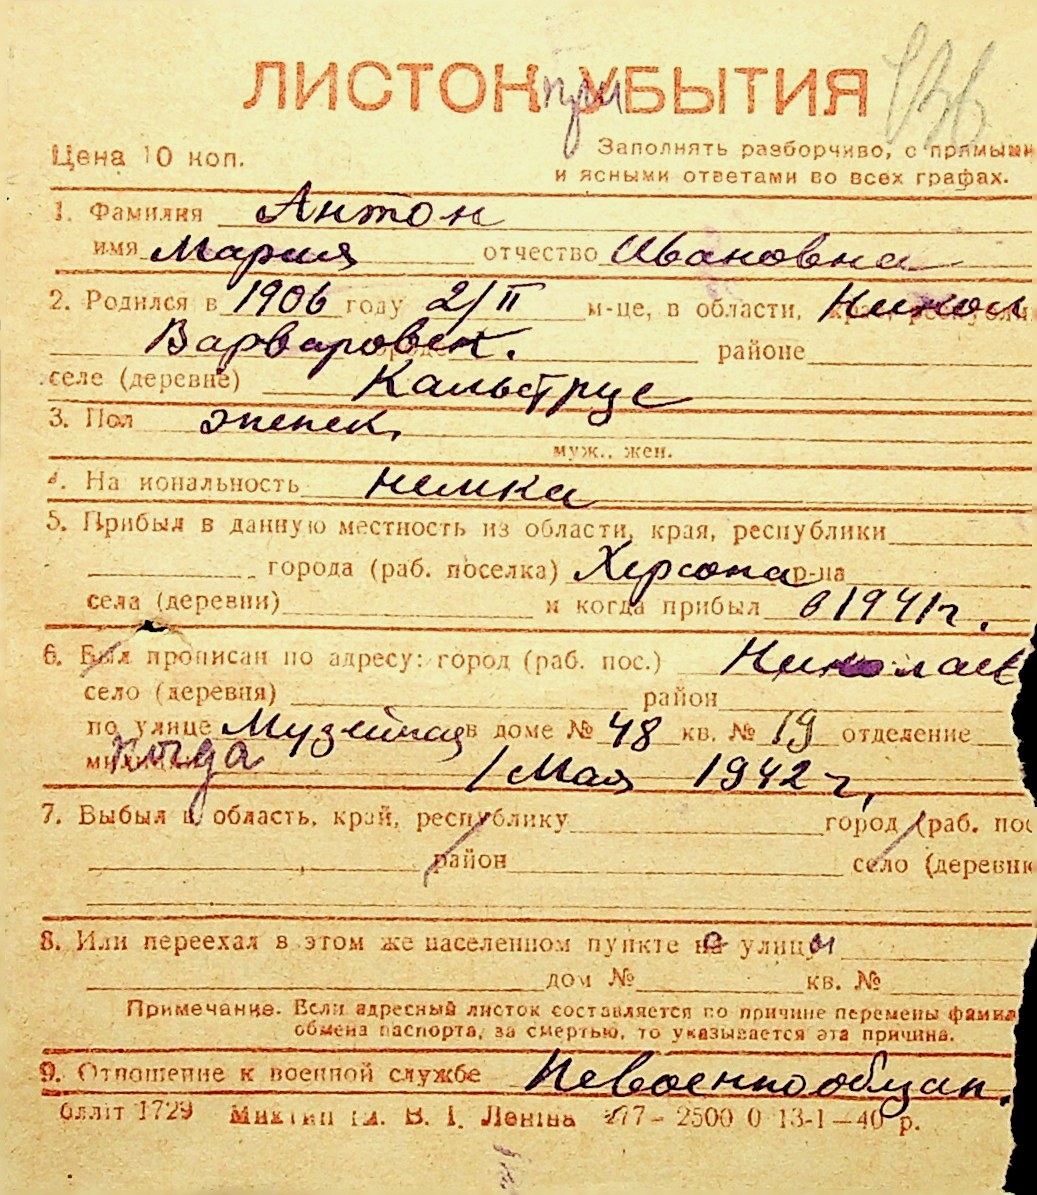 ЛИСТОК приБЫТИЯ
Цена 10 коп.
Заполнять разборчиво, с прямыми
и ясными ответами во всех графах.
1. Фамилия Антон
имя Мария отчество Ивановна
2. Родился в 1906 году 2/II м-це, в области, края, республи Никол
Варваровск. районе
селе (деревне) Кальструе
3. Пол женск.
муж., жен.
4. На иональность немка
5. Прибыл в данную местность из области, края, республики
города (раб. поселка) Херсона р-на
села (деревни) и когда прибыл в 1941 г.
6. Был прописан по адресу: город (раб. пос.) Николаев
село (деревня) район
по улице Музейная в доме № 48 кв. № 19 отделение
когда 1 Мая 1942 г,
7. Выбыл в область, край, республику город (раб. пос
район село (деревню
8. Или переехал в этом же населенном пункте на улицы
дом № кв. №
Примечание. Если адресный листок составляется по причине перемены фамил
обмена паспорта, за смертью, то указывается эта причина.
9. Отношение к военной службе Невоеннообязан.
блліт 1729 В. І. Леніна 277-2500 0 13-1-40 р.